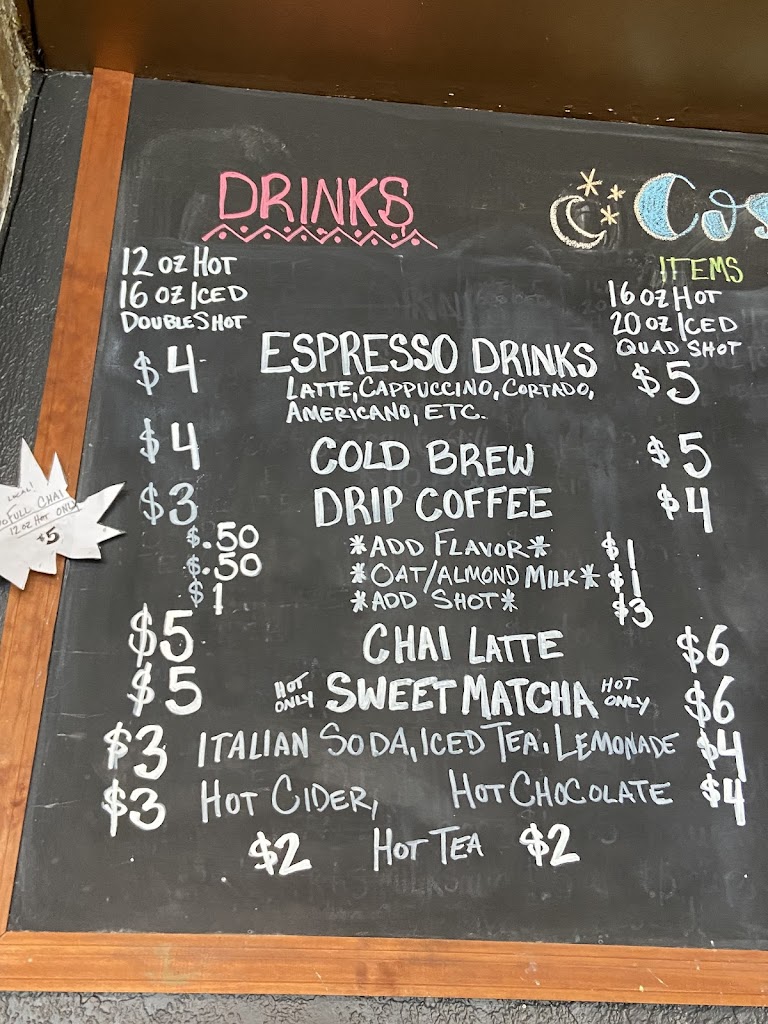 DRINKS
Cos
ITEMS
12 oz Hot
16 oz Iced
Double Shot
16 oz Hot
20 oz Iced
Quad Shot
$4 ESPRESSO DRINKS $5
Latte, Cappuccino, Cortado,
Americano, etc.
$4 COLD BREW $5
$3 DRIP COFFEE $4
$.50 *Add Flavor* $1
$.50 *Oat/Almond Milk* $1
$1 *Add Shot* $3
$5 CHAI LATTE $6
$5 Hot Only SWEET MATCHA Hot Only $6
$3 ITALIAN SODA, ICED TEA, LEMONADE $4
$3 HOT CIDER, HOT CHOCOLATE $4
$2 HOT TEA $2
LOCAL!
FULL CHAI
12 oz Hot ONLY
$5